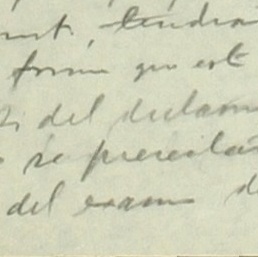 tendra
forma que est
del dictam
se presenta
del examen d